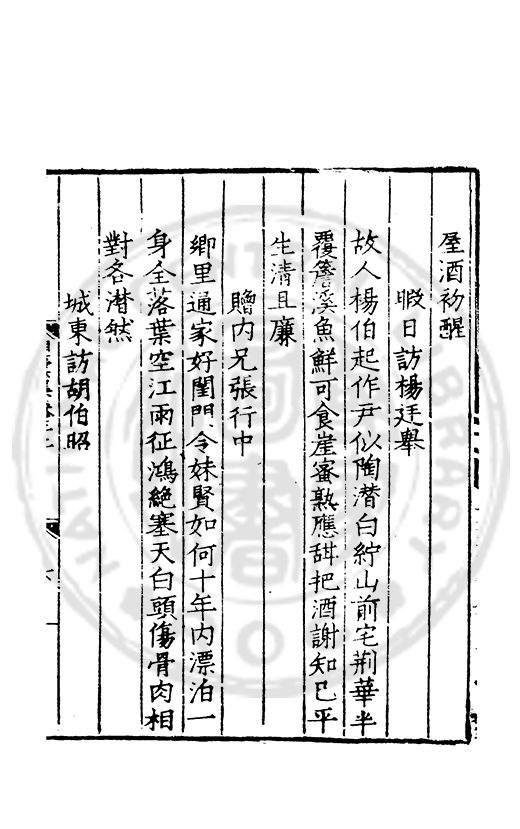 屋酒初醒
暇日訪楊廷舉
故人楊伯起作尹似陶潛白紵山前宅荆華半
覆簷溪魚鮮可食崖蜜熟應甜把酒謝知已平
生清且廉
贈内兄張行中
鄉里通家好閨門令妹賢如何十年内漂泊一
身全落葉空江雨征鴻絶塞天白頭傷骨肉相
對各潸然
城東訪胡伯昭